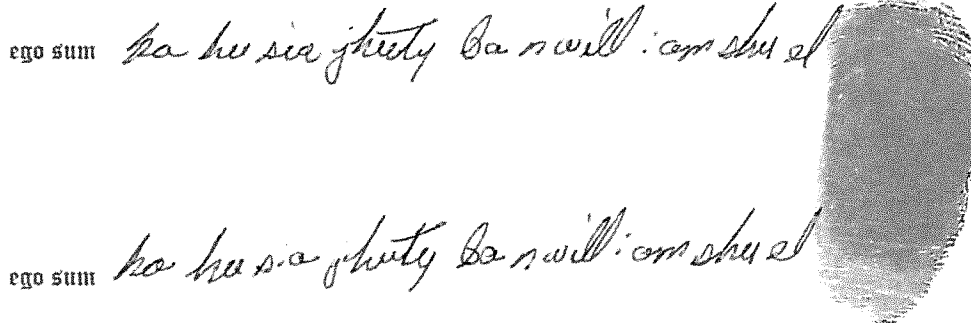 ego sum ka hu sia jhuty Ba n will:am shu el
ego sum ka hu sia jhuty Ba n will:am shu el